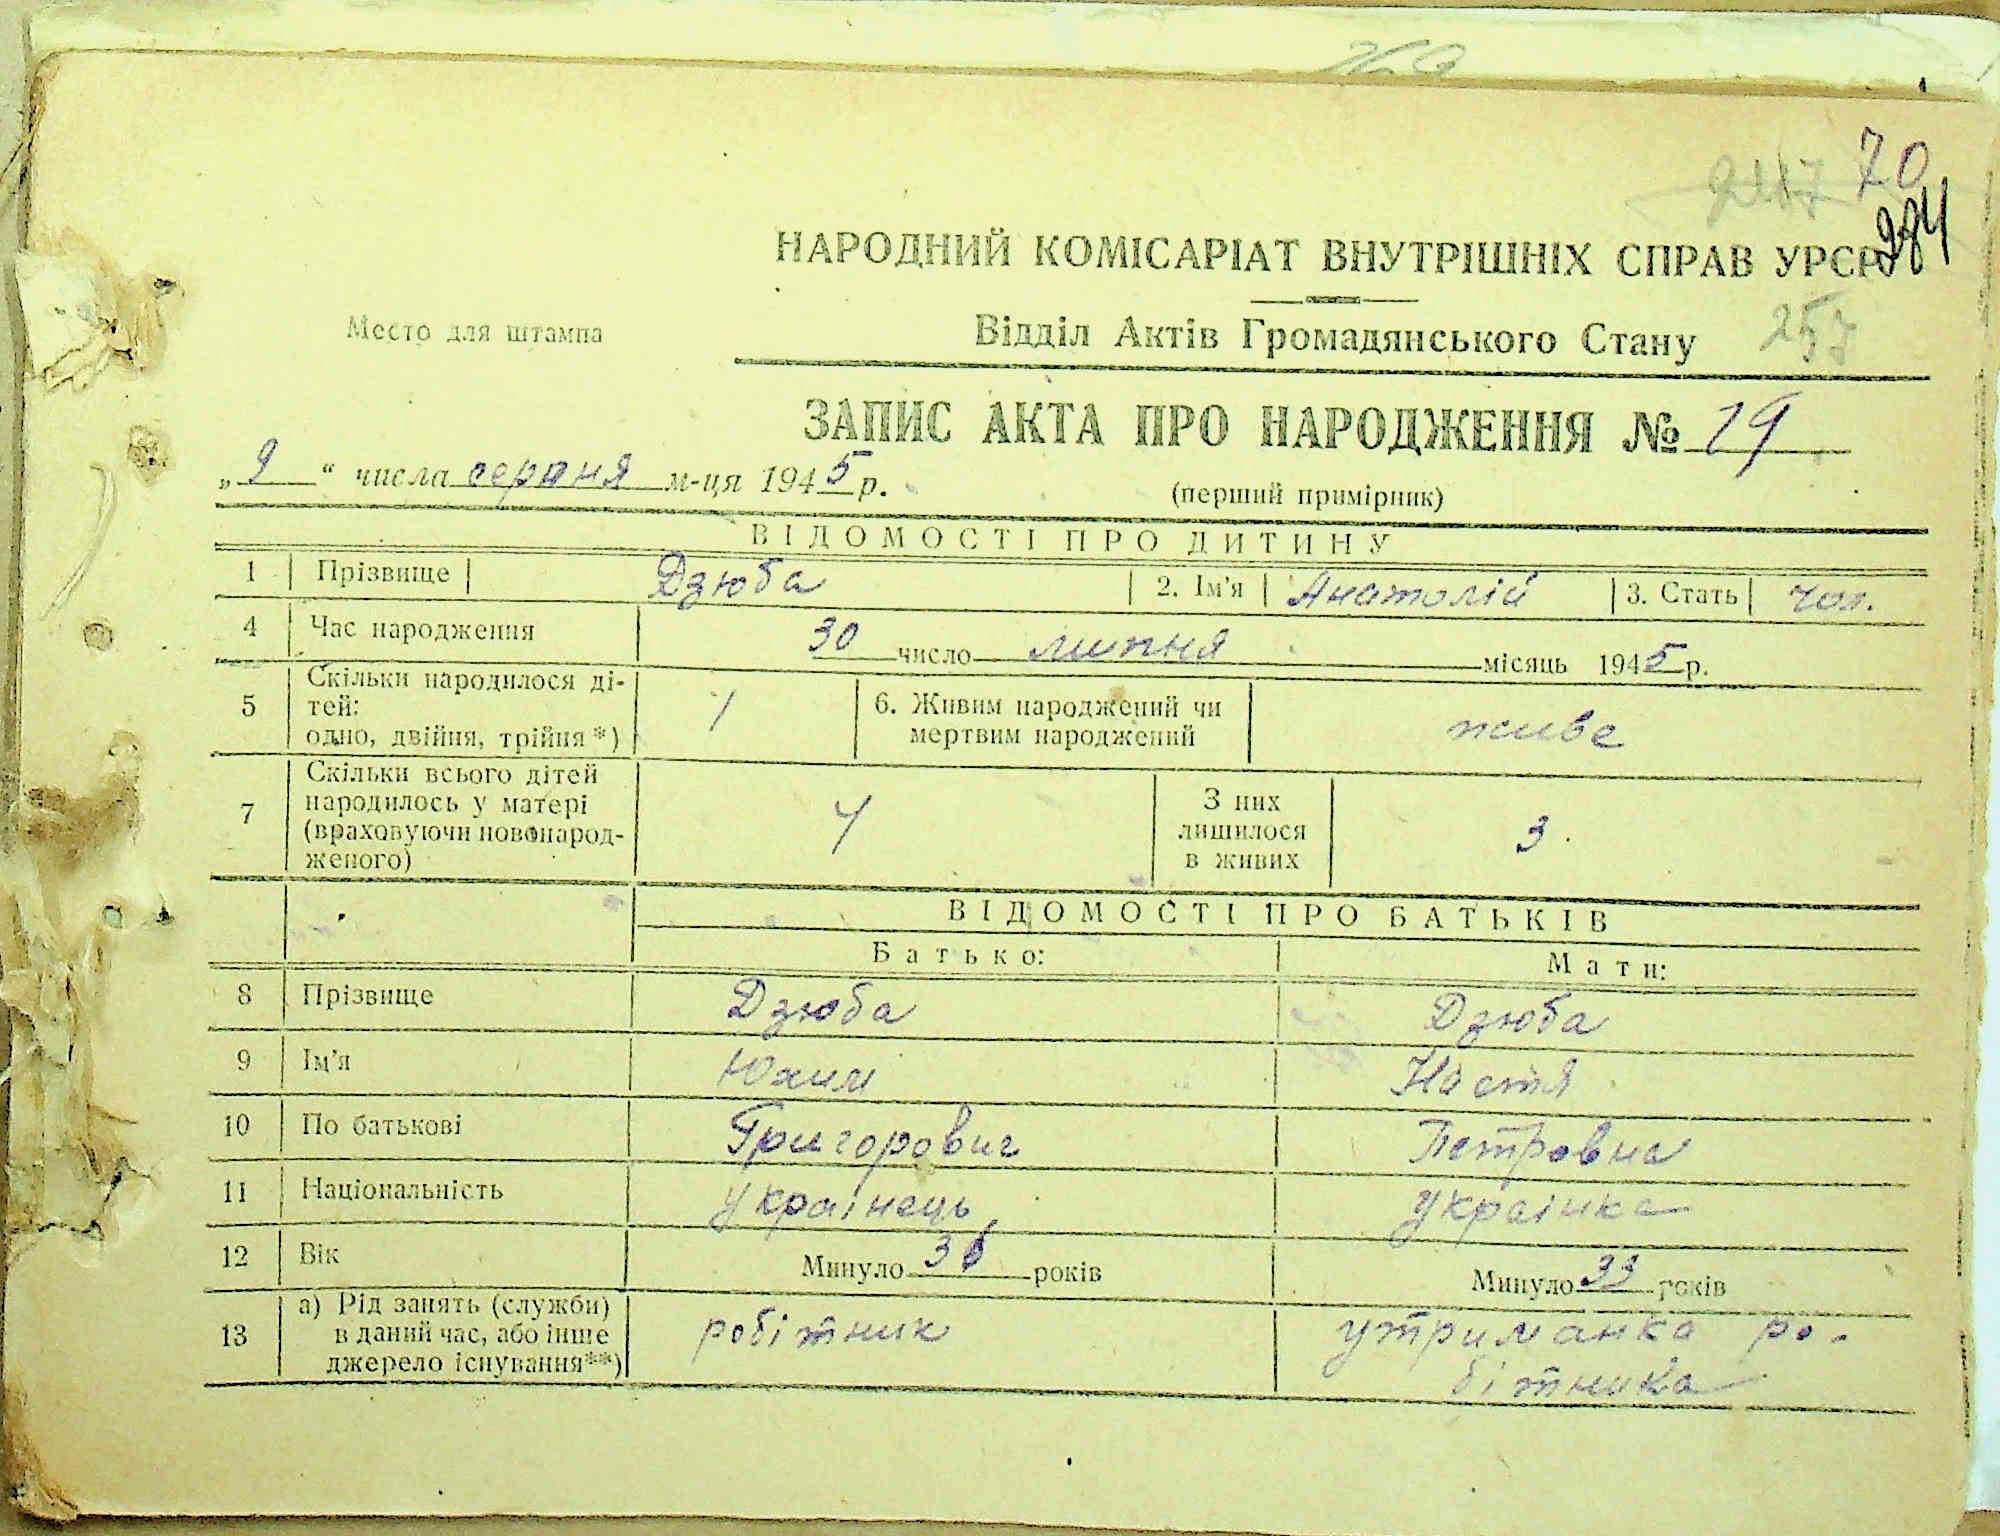 70
284
НАРОДНИЙ КОМІСАРІАТ ВНУТРІШНІХ СПРАВ УРСР
Место для штампа
Відділ Актів Громадянського Стану
257
ЗАПИС АКТА ПРО НАРОДЖЕННЯ № 19
„ 9 “ числа серпня м-ця 1945 р.
(перший примірник)
ВІДОМОСТІ ПРО ДИТИНУ
1 Прізвище Дзюба 2. Ім'я Анатолій 3. Стать чол.
4 Час народження 30 число липня місяць 1945 р.
5 Скільки народилося ді-
тей:
одно, двійня, трійня*) 1
6. Живим народжений чи
мертвим народжений живе
7 Скільки всього дітей
народилось у матері
(враховуючи новонарод-
женого) 4
З них
лишилося
в живих 3
ВІДОМОСТІ ПРО БАТЬКІВ
Батько: Мати:
8 Прізвище Дзюба Дзюба
9 Ім'я Юхим Настя
10 По батькові Григорович Петровна
11 Національність Українець Українка
12 Вік Минуло 36 років Минуло 33 років
13 а) Рід занять (служби)
в даний час, або інше
джерело існування**)
робітник
утриманка ро-
бітника